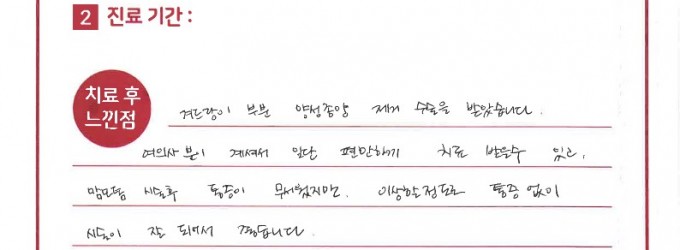 2 진료 기간 :
치료 후
느낀점
겨드랑이 부분 양성종양 제거 수술을 받았습니다.
여의사 분이 계셔서 일단 편안하게 치료 받을수 있고,
맘모톰 시술후 통증이 무서웠지만. 이상할정도로 통증 없이
시술이 잘 되어서 좋습니다.